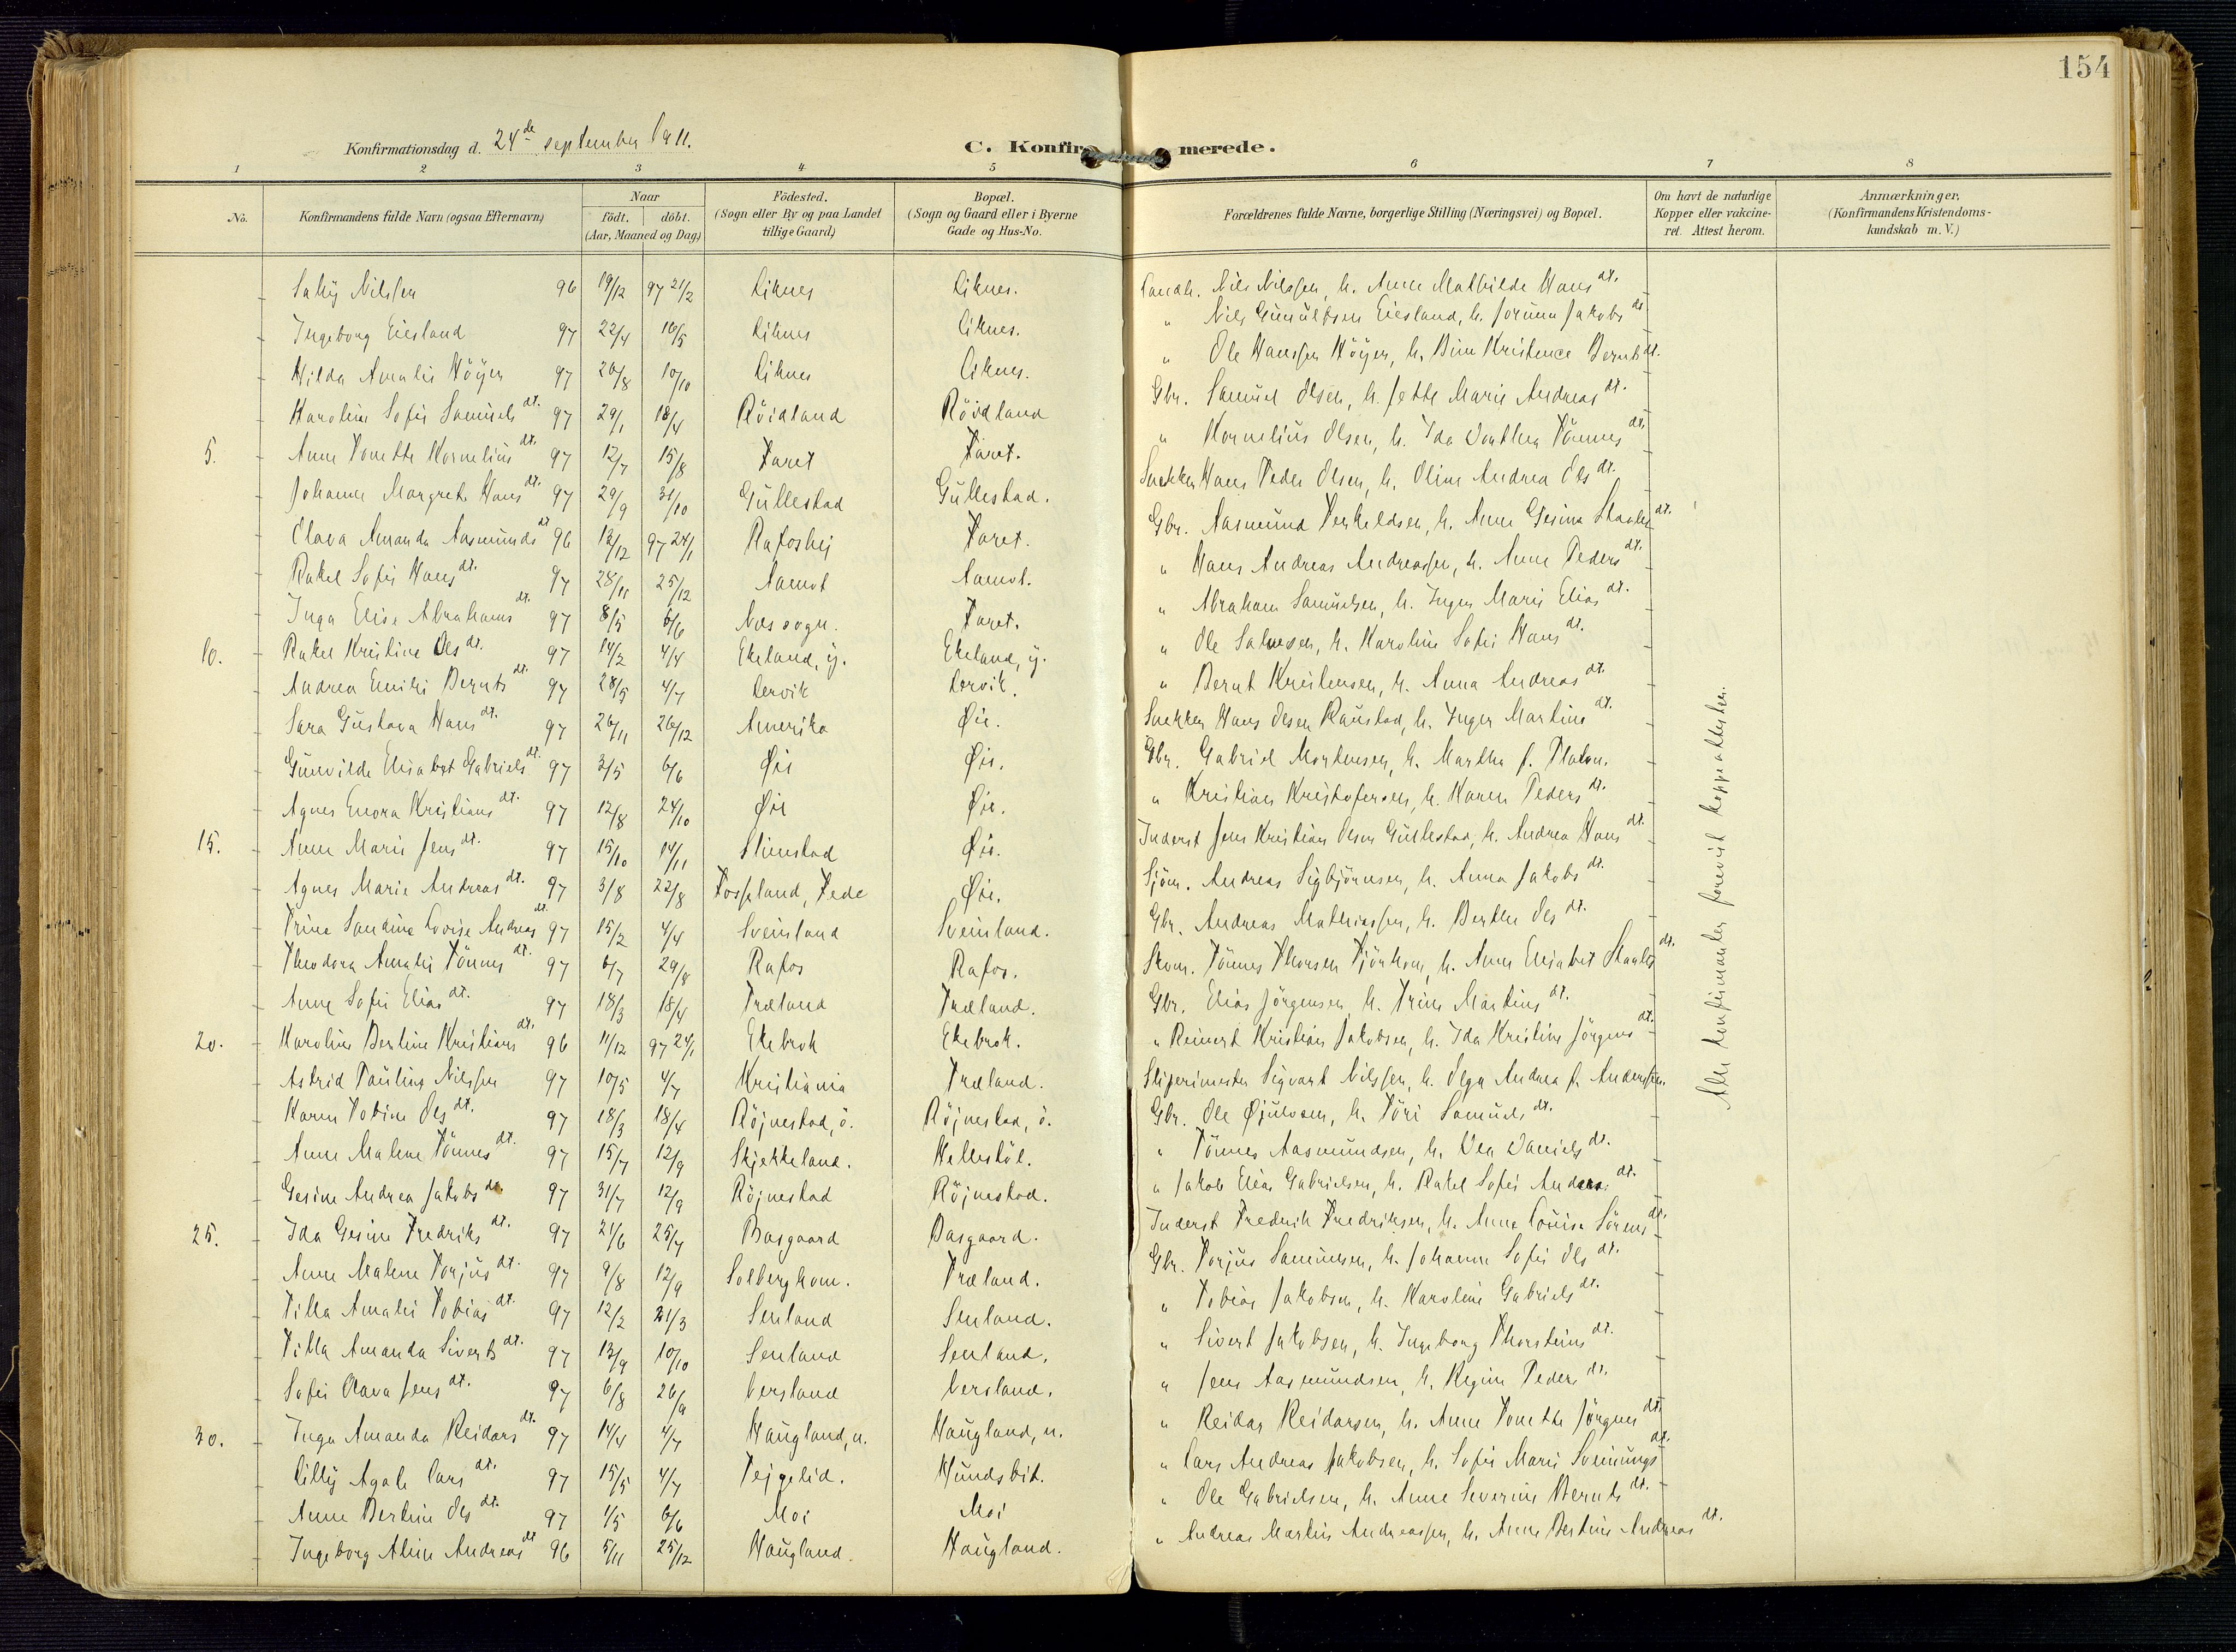 154
Konfirmationsdag d. 24de september 1911.
C. Konfirmerede.
1 2 3 4 5 6 7 8
No.
Konfirmandens fulde Navn (ogsaa Efternavn)
Naar
födt. döbt.
(Aar, Maaned og Dag)
Födested.
(Sogn eller By og paa Landet
tillige Gaard)
Bopæl.
(Sogn og Gaard eller i Byerne
Gade og Hus-No.
Forældrenes fulde Navne, borgerlige Stilling (Næringsvei) og Bopæl.
Om havt de naturlige
Kopper eller vakcine-
ret. Attest herom.
Anmærkninger,
(Konfirmandens Kristendoms-
kundskab m. V.)
Nilssen 96 19/12 97 21/2 Liknes Liknes. Landh. Nils Nilssen, h. Anne Mathilde Hans dt.
Ingeborg Eiesland 97 22/4 16/5 Liknes Liknes. " Nils Gunulfsen Eiesland, h. Jorunn Jakobs dt.
Hilda Amalie Höyer 97 26/8 10/10 Liknes Liknes. " Ole Hanssen Höyer, h. Kristence Bernts dt.
Karoline Sofie Samuels dt. 97 29/1 18/4 Röidland Röidland Gbr. Samuel Olsen, h. Jette Marie Andreas dt.
5. Anne Tonette Kornelius dt. 97 12/7 15/8 Faret Faret. " Kornelius Olsen, h. Ida Dorthea Tönnes dt.
Johanne Margrete Hans dt. 97 29/9 31/10 Gullestad Gullestad. Snekker Hans Peder Olsen, h. Oline Andrea Ols dt.
Olava Amanda Aasmunds dt. 96 12/12 97 24/1 Rafoshej Faret. Gbr. Aasmund Terkeldsen, h. Anne Gesine dt.
Rakel Sofie Hans dt. 97 28/11 25/12 Aamot Aamot. " Hans Andreas Andreassen, h. Anne Peders dt.
Inga Elise Abrahams dt. 97 8/5 6/6 Nes sogn. Faret. " Abraham Samuelsen, h. Inger Marie Elias dt.
10. Rakel Kristine Ols dt. 97 14/2 4/4 Ekeland, y. Ekeland, y. " Ole Salvesen, h. Karoline Sofie Hans dt.
Andrea Emilie Bernts dt. 97 28/5 4/7 Lervik Lervik. " Bernt Kristensen, h. Anna Andreas dt.
Sara Gustava Hans dt. 97 26/11 26/12 Amerika Øie. Snekker Hans Olsen Raustad, h. Inger Martine dt.
Gunvilde Elisabet Gabriels dt. 97 3/5 6/6 Øie Øie. Gbr. Gabriel Mortensen, h. Martha f. Platon.
Agnes Enora Kristians dt. 97 12/8 24/10 Øie Øie. " Kristian Kristofersen, h. Karen Peders dt.
15. Anne Marie Jens dt. 97 15/10 14/11 Slimstad Øie. Inderst Jens Kristian Olsen Gullestad, h. Andrea Hans dt.
Agnes Marie Andreas dt. 97 3/8 22/8 Fosseland, Fede Øie. Sjöm. Andreas Sigbjörnsen, h. Anna Jakobs dt.
Trine Sandine Lovise Andreas dt. 97 15/2 4/4 Sveinsland Sveinsland. Gbr. Andreas Mathiassen, h. Berthe Ols dt.
Theodora Amalie Tönnes dt. 97 6/7 29/8 Rafos Rafos. Skom. Tönnes Thorsen Tjörhom, h. Anne Elisabet dt.
Anne Sofie Elias dt. 97 18/3 18/4 Træland Træland. Gbr. Elias Jörgensen, h. Trine Martins dt.
20. Karoline Bertine Kristians dt. 96 11/12 97 24/1 Ekebrok Ekebrok. " Reinert Kristian Jakobsen, h. Ida Kristine Jörgens dt.
Astrid Pauline Nilssen 97 10/5 4/7 Kristiania Træland. Sliperimester Sigvart Nilssen, h. Olga Andrea f. Anderssen.
Karen Tobine Ols dt. 97 18/3 18/4 Röjnestad, ö. Röjnestad, ö. Gbr. Ole Gjulvsen, h. Töri Samuels dt.
Anne Malene Tönnes dt. 97 15/7 12/9 Skjekkeland. Hellestöl. " Tönnes Aasmundsen, h. Daniels dt.
Gesine Andrea Jakobs dt. 97 31/7 12/9 Röjnestad Röjnestad. " Jakob Elias Gabrielsen, h. Rakel Sofie Anders dt.
25. Ida Gesine Fredriks dt. 97 21/6 25/7 Basgaard Basgaard. Inderst Fredrik Fredriksen, h. Anne Louise Sörens dt.
Anne Malene Torjus dt. 97 9/8 12/9 Solberghom. Træland. Gbr. Torjus Samuelsen, h. Johanne Sofie Ols dt.
Tilla Amalie Tobias dt. 97 12/2 21/3 Senland Senland. " Tobias Jakobsen, h. Karoline Gabriels dt.
Tilla Amanda Siverts dt. 97 13/9 10/10 Senland Senland. " Sivert Jakobsen, h. Ingeborg Thorsteins dt.
Sofie Olava Jens dt. 97 6/8 26/9 Versland Versland. " Jens Aasmundsen, h. Regine Peders dt.
30. Inga Amanda Reidars dt. 97 14/4 4/7 Haugland, n. Haugland, n. " Reidar Reidarsen, h. Anne Tonette Jörgens dt.
Lilly Agate Lars dt. 97 15/5 4/7 Tejgelid. Hundsbit. " Lars Andreas Jakobsen, h. Sofie Marie Sveinungs dt.
Anne Bertine Ols dt. 97 1/5 6/6 Moi Moi " Ole Gabrielsen, h. Anne Severine Bernts dt.
Ingeborg Aline Andreas dt. 96 5/11 25/12 Haugland. Haugland. " Andreas Martin Andreassen, h. Anne Bertine Andreas dt.
Alle konfirmanter forevist koppeattester.